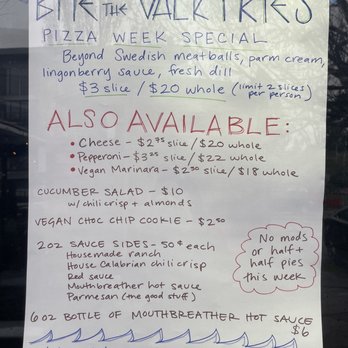 BITE THE VALKYRIES
PIZZA WEEK SPECIAL
Beyond Swedish meatballs, parm cream,
lingonberry sauce, fresh dill
$3 slice / $20 whole (limit 2 slices per person)
ALSO AVAILABLE:
• Cheese - $2.75 slice / $20 whole
• Pepperoni - $3.25 slice / $22 whole
• Vegan Marinara - $2.50 slice / $18 whole
CUCUMBER SALAD - $10
w/ chili crisp + almonds
VEGAN CHOC CHIP COOKIE - $2.50
2oz SAUCE SIDES - 50¢ each
Housemade ranch
House Calabrian chili crisp
Red sauce
Mouthbreather hot sauce
Parmesan (the good stuff)
No mods
or half +
half pies
this week
6 oz BOTTLE OF MOUTHBREATHER HOT SAUCE
$6